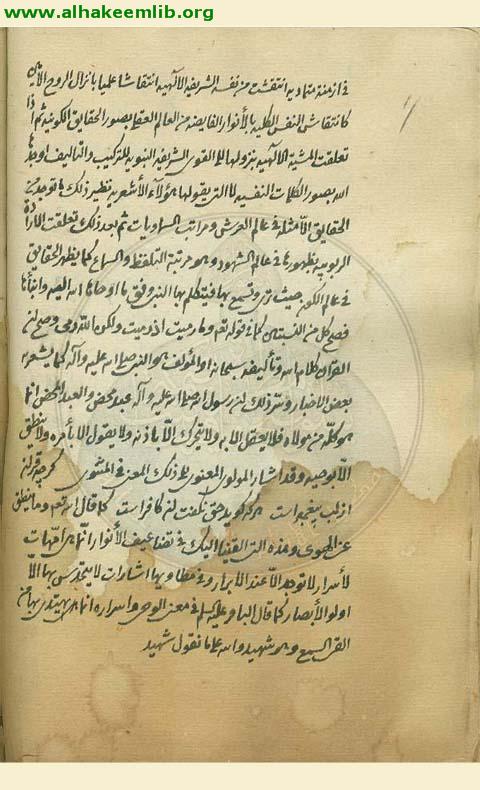 www.alhakeemlib.org
في ازمنة متماديه انتقشت من نفسه الشريفه الالهيه انتقاشا علميا بانزال الروح الأمين
كانتقاش النفس الكليه بالأنوار الفايضه من العالم العقلي بصور الحقايق الكونيه ثم اذا
تعلقت المشية الالهيه بنزولها الى القوى الشريفه النبويه للتركيب والتأليف اوجدها
الله بصور الكلمات النفسيه لا التي يقولها هؤلاء الأشعريه نظير ذلك ما توجد من
الحقايق الأمثله في عالم العرش ومراتب السماويات ثم بعد ذلك تعلقت الارادة
الربوبيه بظهورها في عالم الشهود وهو مرتبة التلفظ والسماع كما يظهر الحقايق
في عالم الكون حيث ترى وتسمع بها فيتكلم بها النبي وفق ما اوحاها الله اليه وانبأنا
فصح كل من النسبتان كما في قوله تعه وما رميت اذ رميت ولكن الله رمى وصح لن
القران كلام الله وتأليفه سبحانه او المؤلف هو النبي صلى الله عليه وآله كما يشعر به
بعض الاخبار وسر ذلك لن رسول الله صلى الله عليه وآله عبد محض والعبد المحض انما
هو كله من مولاه فلا يعقل الا به ولا يتحرك الا باذنه ولا يقول الا بأمره ولا ينطق
الا بوحيه وقد اشار المولوي المعنوي الى ذلك المعنى في المثنوى گرچه قران
از لب پيغمبر است هر كه گويد حق نگفت ان كافر است كما قال الله تعه وما ينطق
عن الهوى وهذه التي القينا اليك في تضاعيف الأنوار انما هي أمهات
لأسرار لا توجد الا عند الابرار وفي مطاويها اشارات لا يتحدس بها الا
اولو الأبصار كما قال الباقر عليه لم في معنى الوحى واسراره انما يهتدى بها من
القى السمع وهو شهيد والله على ما نقول شهيد